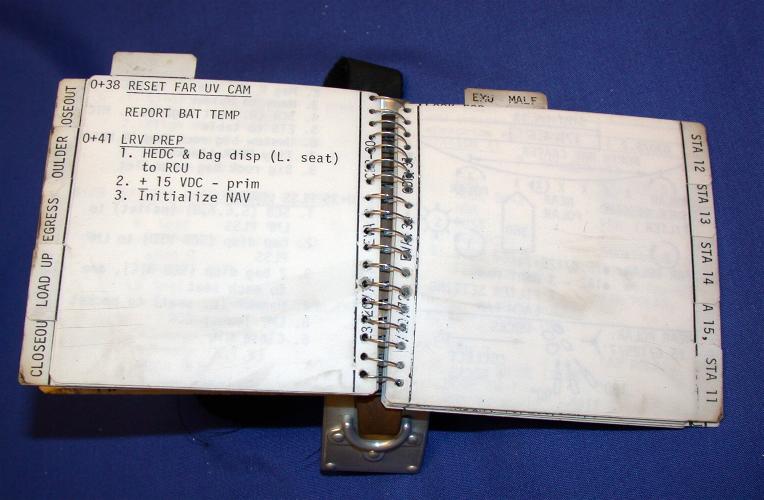 0+38 RESET FAR UV CAM
REPORT BAT TEMP
0+41 LRV PREP
1. HEDC & bag disp (L. seat)
to RCU
2. ± 15 VDC - prim
3. Initialize NAV
OSEOUT
OULDER
EGRESS
LOAD UP
CLOSEOU
EMU MALF
STA 12
STA 13
STA 14
A 15,
STA 11